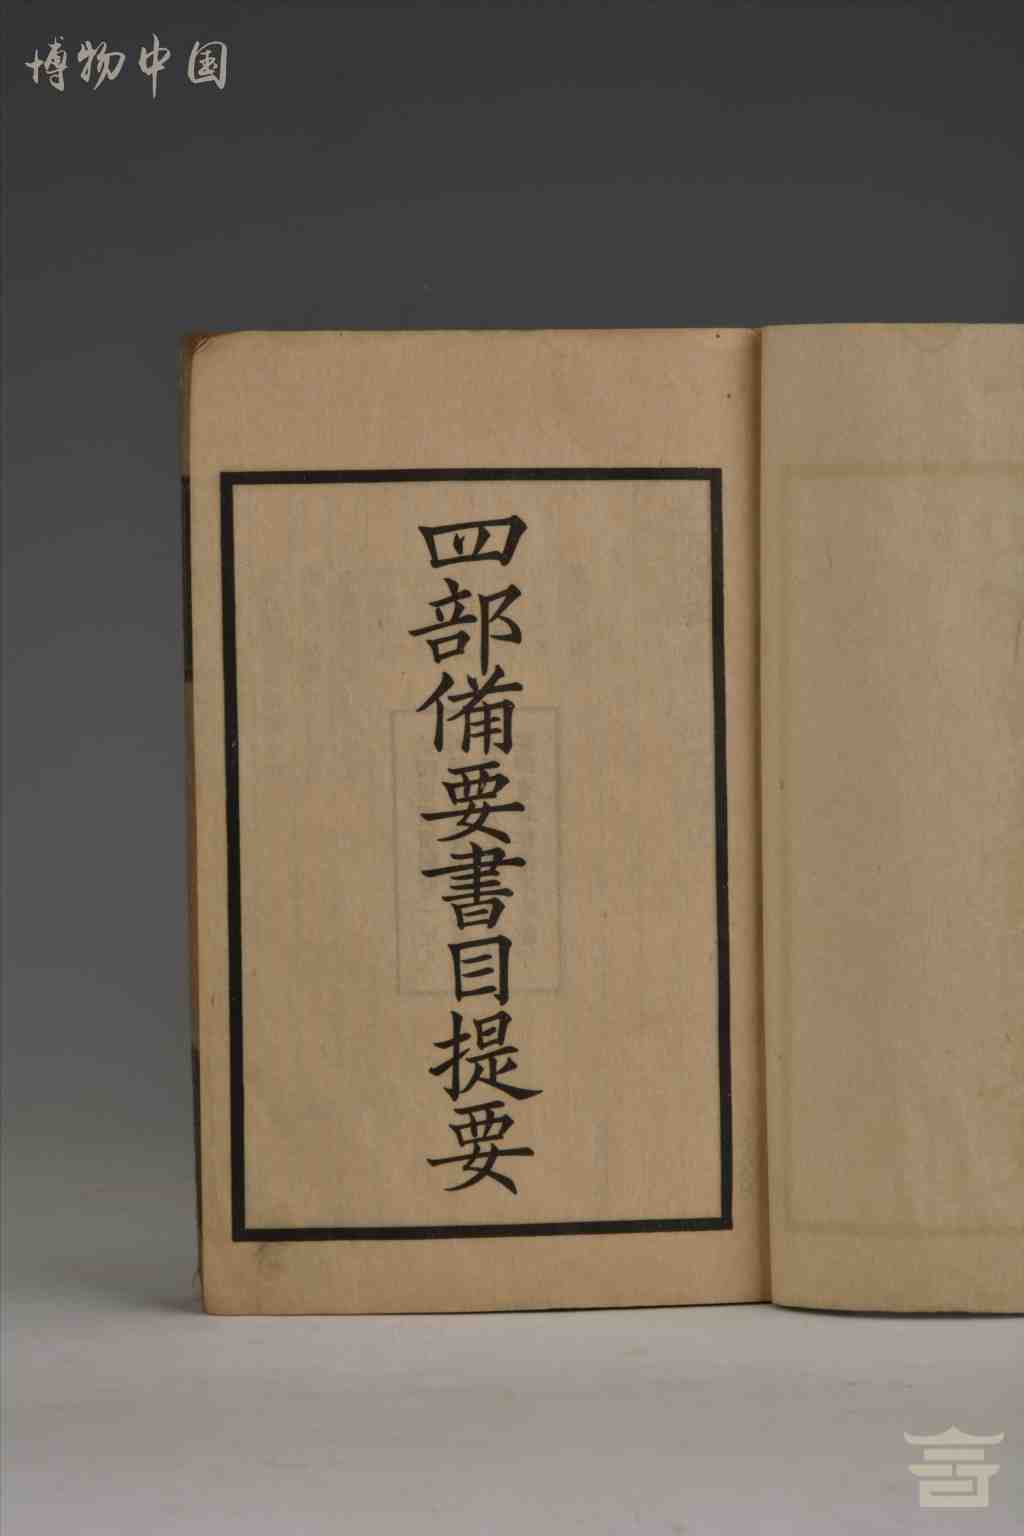 博物中国
四部備要書目提要